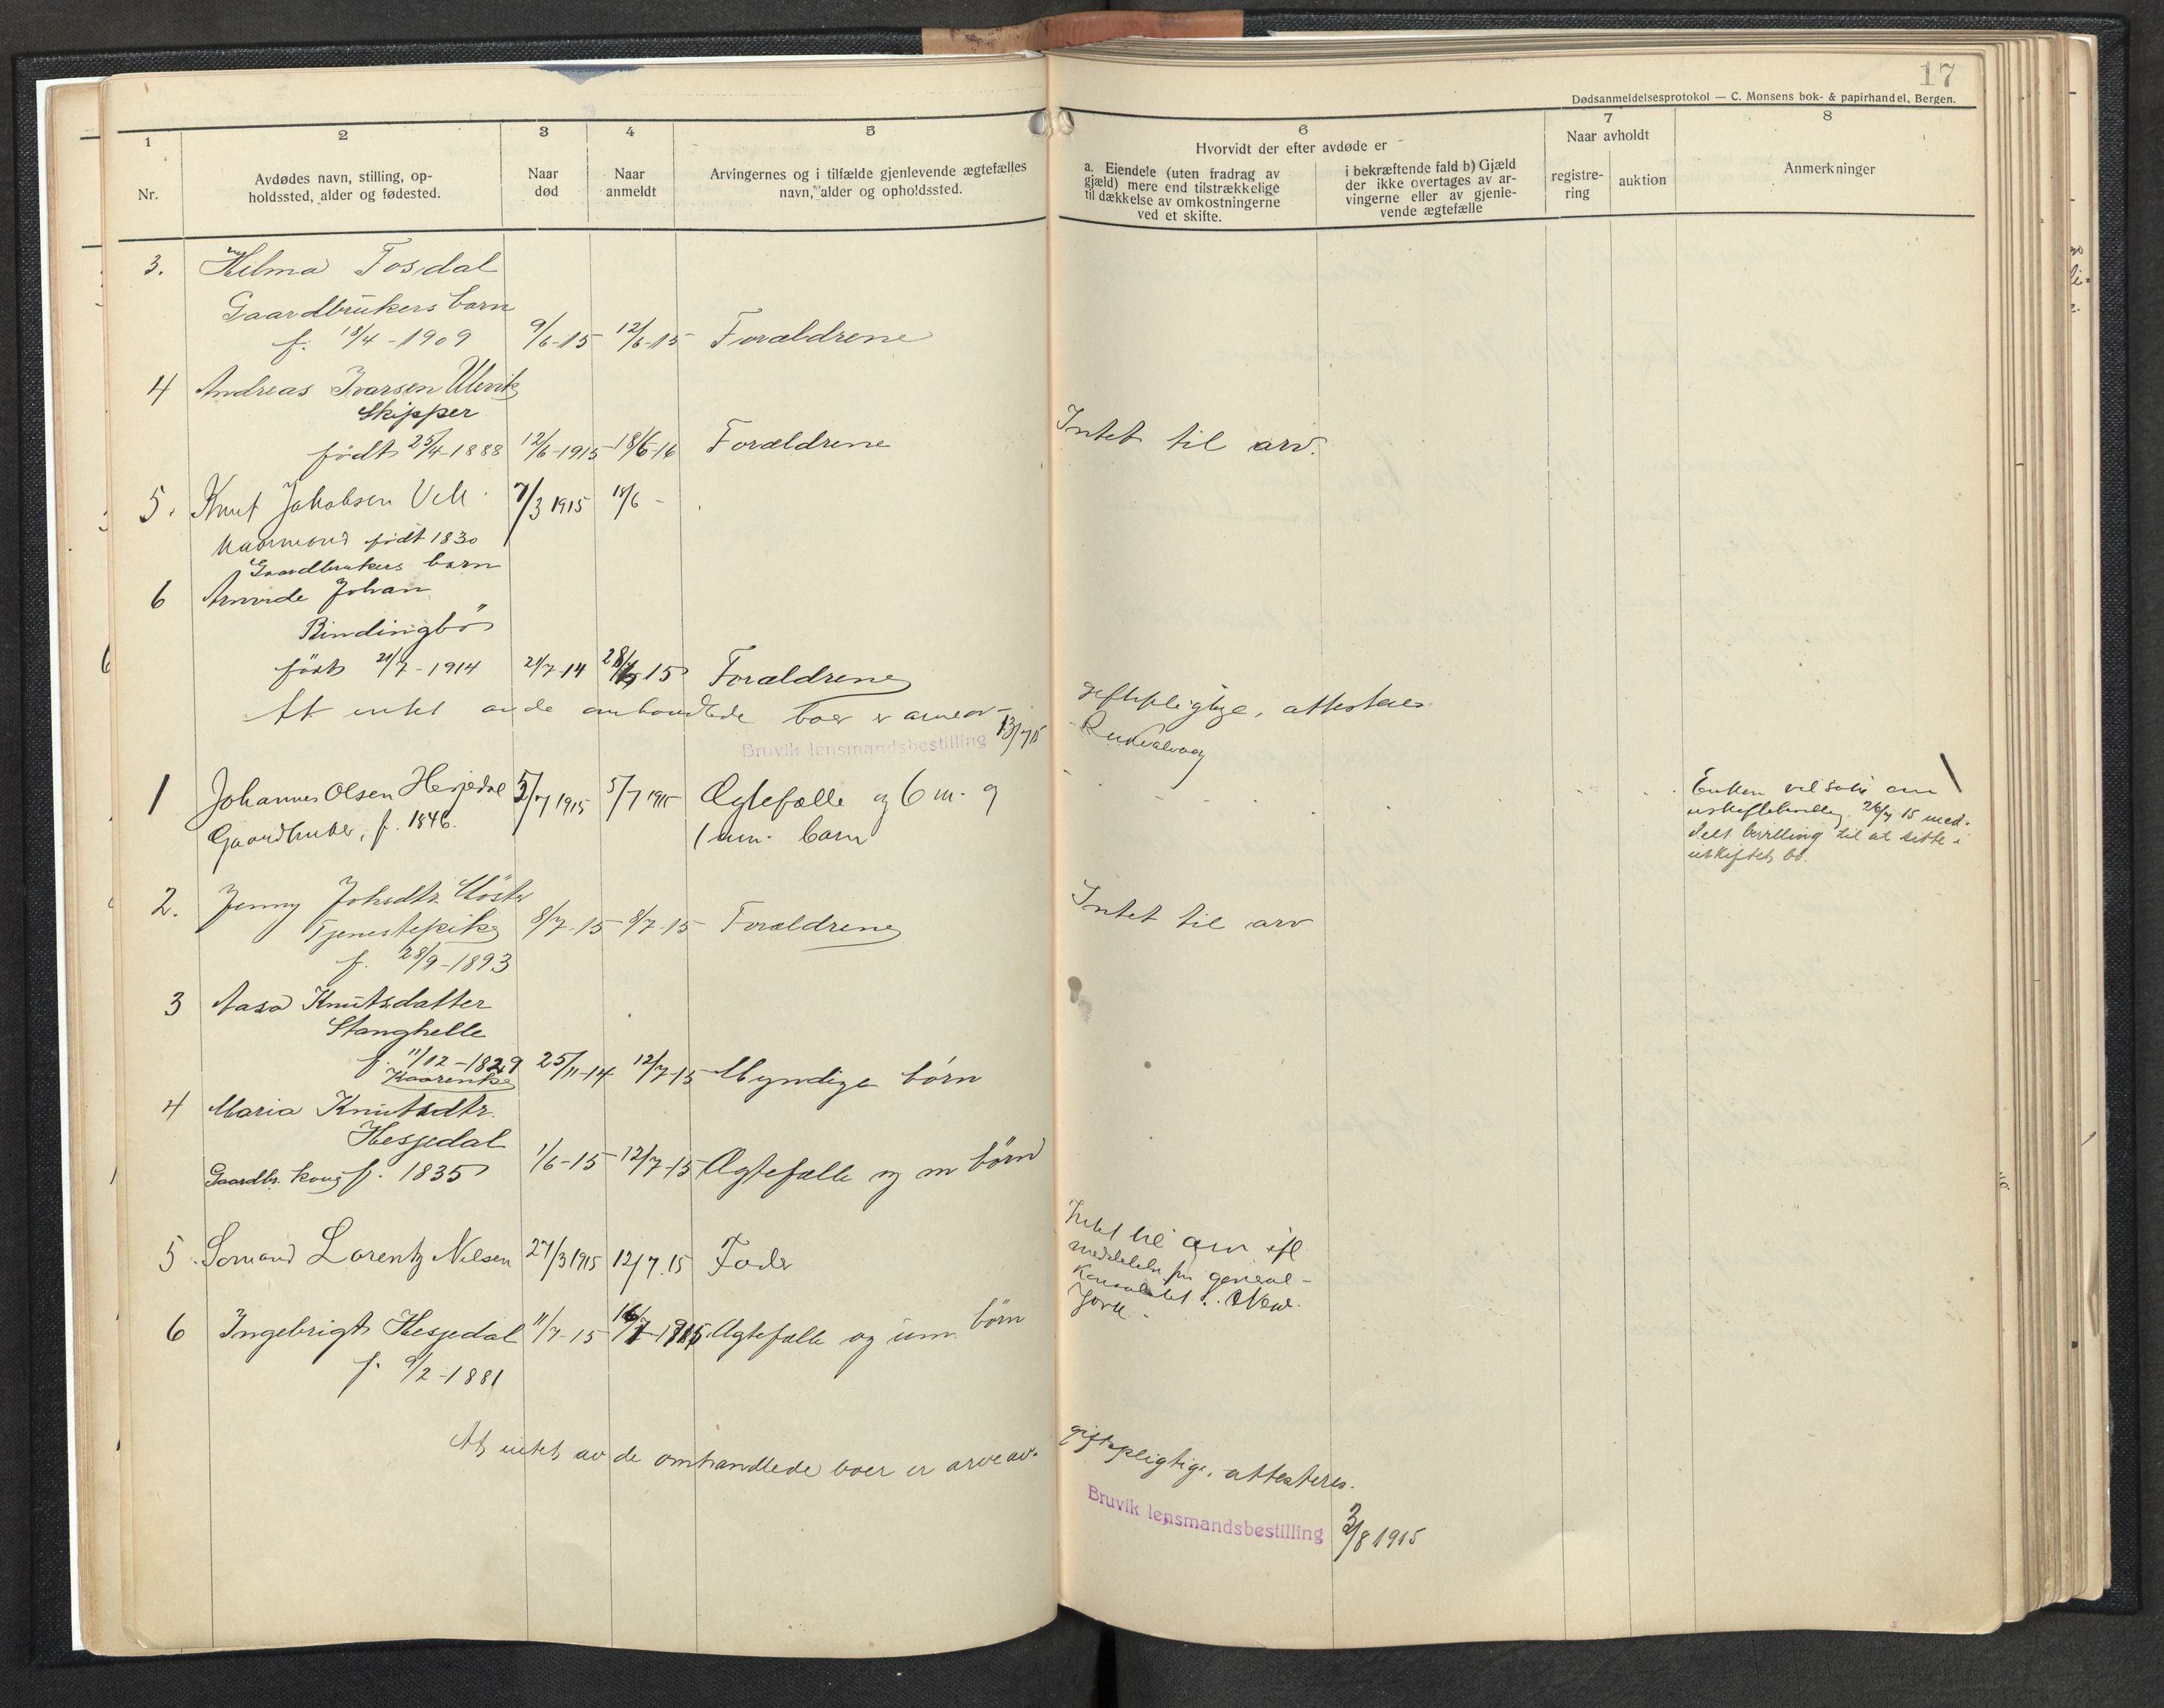 17
Dødsanmeldelsesprotokol — C. Monsens bok- & papirhandel, Bergen.
1
Nr.
2
Avdødes navn, stilling, op-
holdssted, alder og fødested.
3
Naar
død
4
Naar
anmeldt
5
Arvingernes og i tilfælde gjenlevende ægtefælles
navn, alder og opholdssted.
6
Hvorvidt der efter avdøde er
a. Eiendele (uten fradrag av
gjæld) mere end tilstrækkelige
til dækkelse av omkostningerne
ved et skifte.
i bekræftende fald b) Gjæld
der ikke overtages av ar-
vingerne eller av gjenle-
vende ægtefælle
7
Naar avholdt
registre-
ring
auktion
8
Anmerkninger
3. Hilma Fosdal
Gaardbrukers barn
f. 18/4-1909 9/6-15 12/6-15 Forældrene
4 Andreas Ivarsen Ulvik
Skipper
født 25/4-1888 12/6-1915 18/6-16 Forældrene Intet til arv.
5. Knut Jakobsen Vik 7/3 1915 18/6 -
Kaarmand født 1830
Gaardbrukers barn
6 Arnvide Johan
Bindingbø
født 21/7-1914 21/7-14 15 Forældrene
At intet av de omhandlede boer er arveav- giftspligtige, attesteres
Bruvik lensmandsbestilling 13/7 15
1 Johannes Olsen Hesjedal 5/7 1915 5/7 1915 Ægtefælle og 6 m. og
Gaardbruker, f. 1846. 1 um. barn
Enken vil søke om
uskiftebevilling. 26/7 15 med-
delt bevilling til at sitte i
uskiftet bo.
2. Jenny Johsdtr.
Tjenestepike 8/7-15 8/7-15 Forældrene Intet til arv
f. 28/9-1893
3 Aasa Knutsdatter
Stanghelle
f. 11/12-1829 25/11-14 12/7-15 Myndige børn
Kaarenke
4 Maria Knutsdtr.
Hesjedal
Gaardbr. kone f. 1835 1/6-15 12/7-15 Ægtefælle og m børn
5. Sømand Lorentz Nilsen 27/3 1915 12/7.15 Fader
Intet til arv ifl.
meddelelse fra general-
konsulatet i New
York -
6 Ingebrigt Hesjedal 11/7-15 16/7-1915 Ægtefælle og um. børn
f. 9/2-1881
At intet av de omhandlede boer er arveav- giftspligtige, attesteres.
Bruvik lensmandsbestilling 3/8 1915